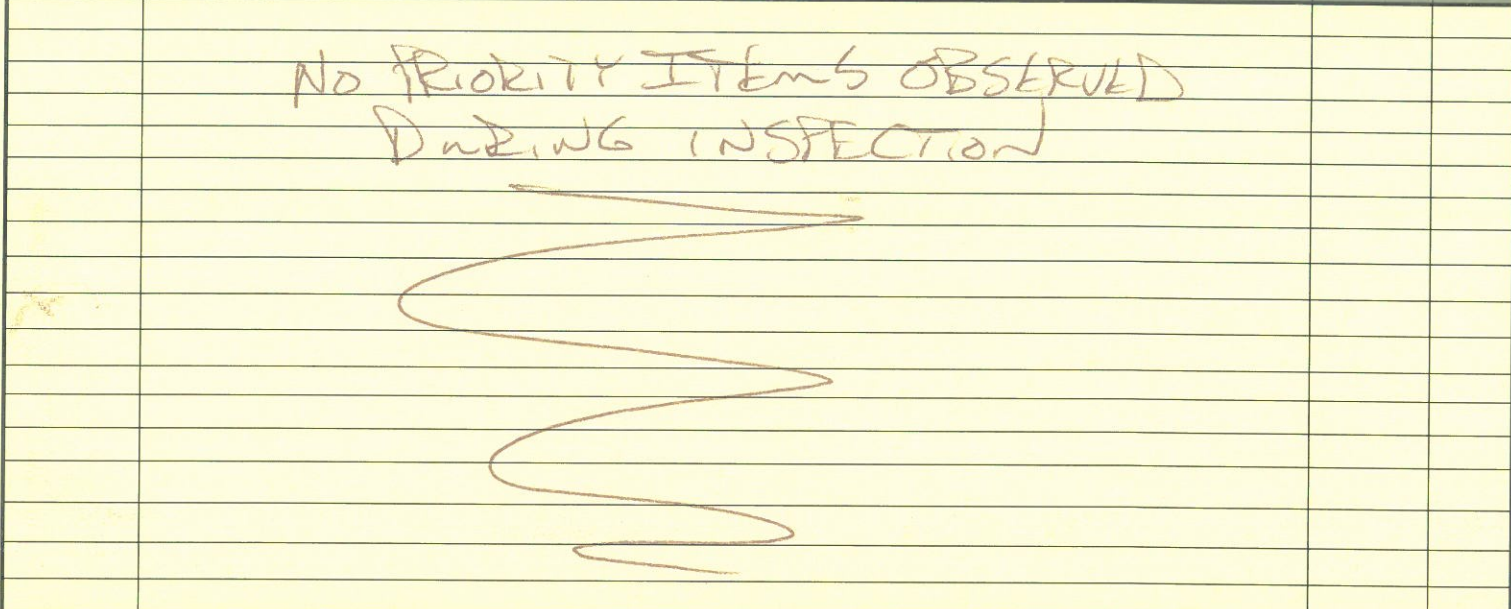 NO PRIORITY ITEMS OBSERVED
DURING INSPECTION